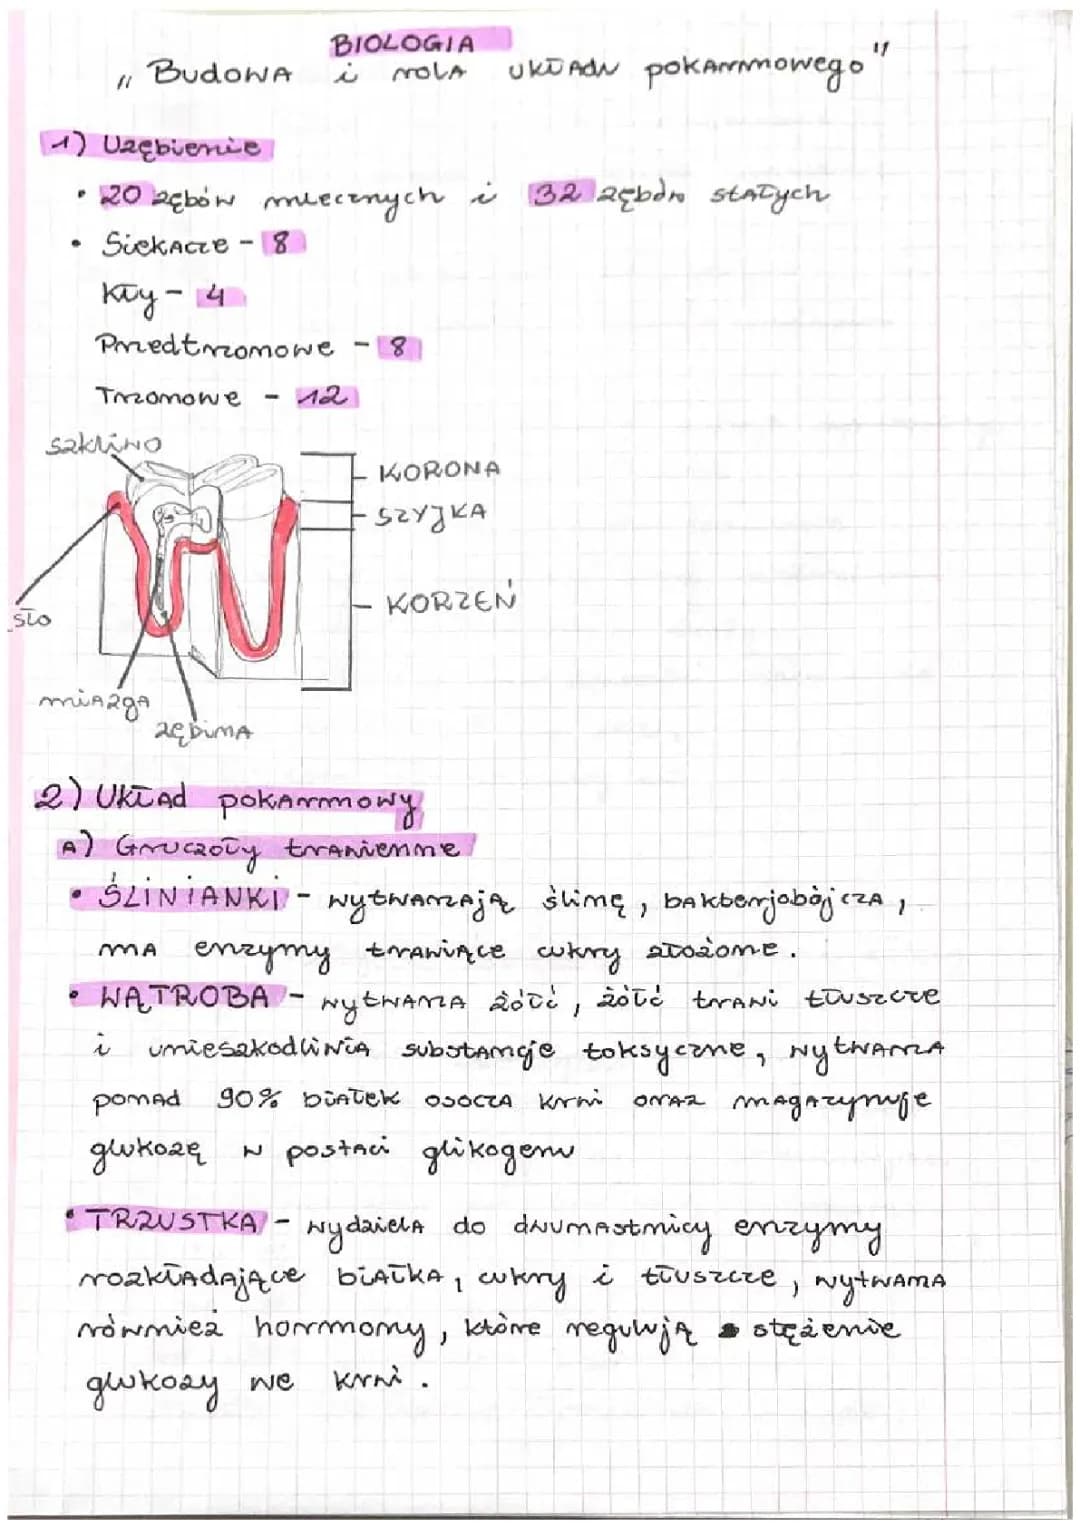 BIOLOGIA
„Budowa i rola układu pokarmowego"
1) Uzębienie
• 20 zębów mlecznych i 32 zębów stałych
• Siekacze - 8
Kły - 4
Przedtrzonowe - 8
Trzonowe - 12
szkliwo
KORONA
SZYJKA
KORZEŃ
sło
miazga
zębina
2) Układ pokarmowy
A) Gruczoły trawienne
• ŚLINIANKI - wytwarzają ślinę, bakterjobójcza,
ma enzymy trawiące cukry złożone.
• WĄTROBA - wytwarza żółć, żółć trawi tłuszcze
i unieszkodliwia substancje toksyczne, wytwarza
ponad 90% białek osocza krwi oraz magazynuje
glukozę w postaci glikogenu
• TRZUSTKA - wydziela do dwunastnicy enzymy
rozkładające białka, cukry i tłuszcze, wytwarza
również hormony, które regulują stężenie
glukozy we krwi.